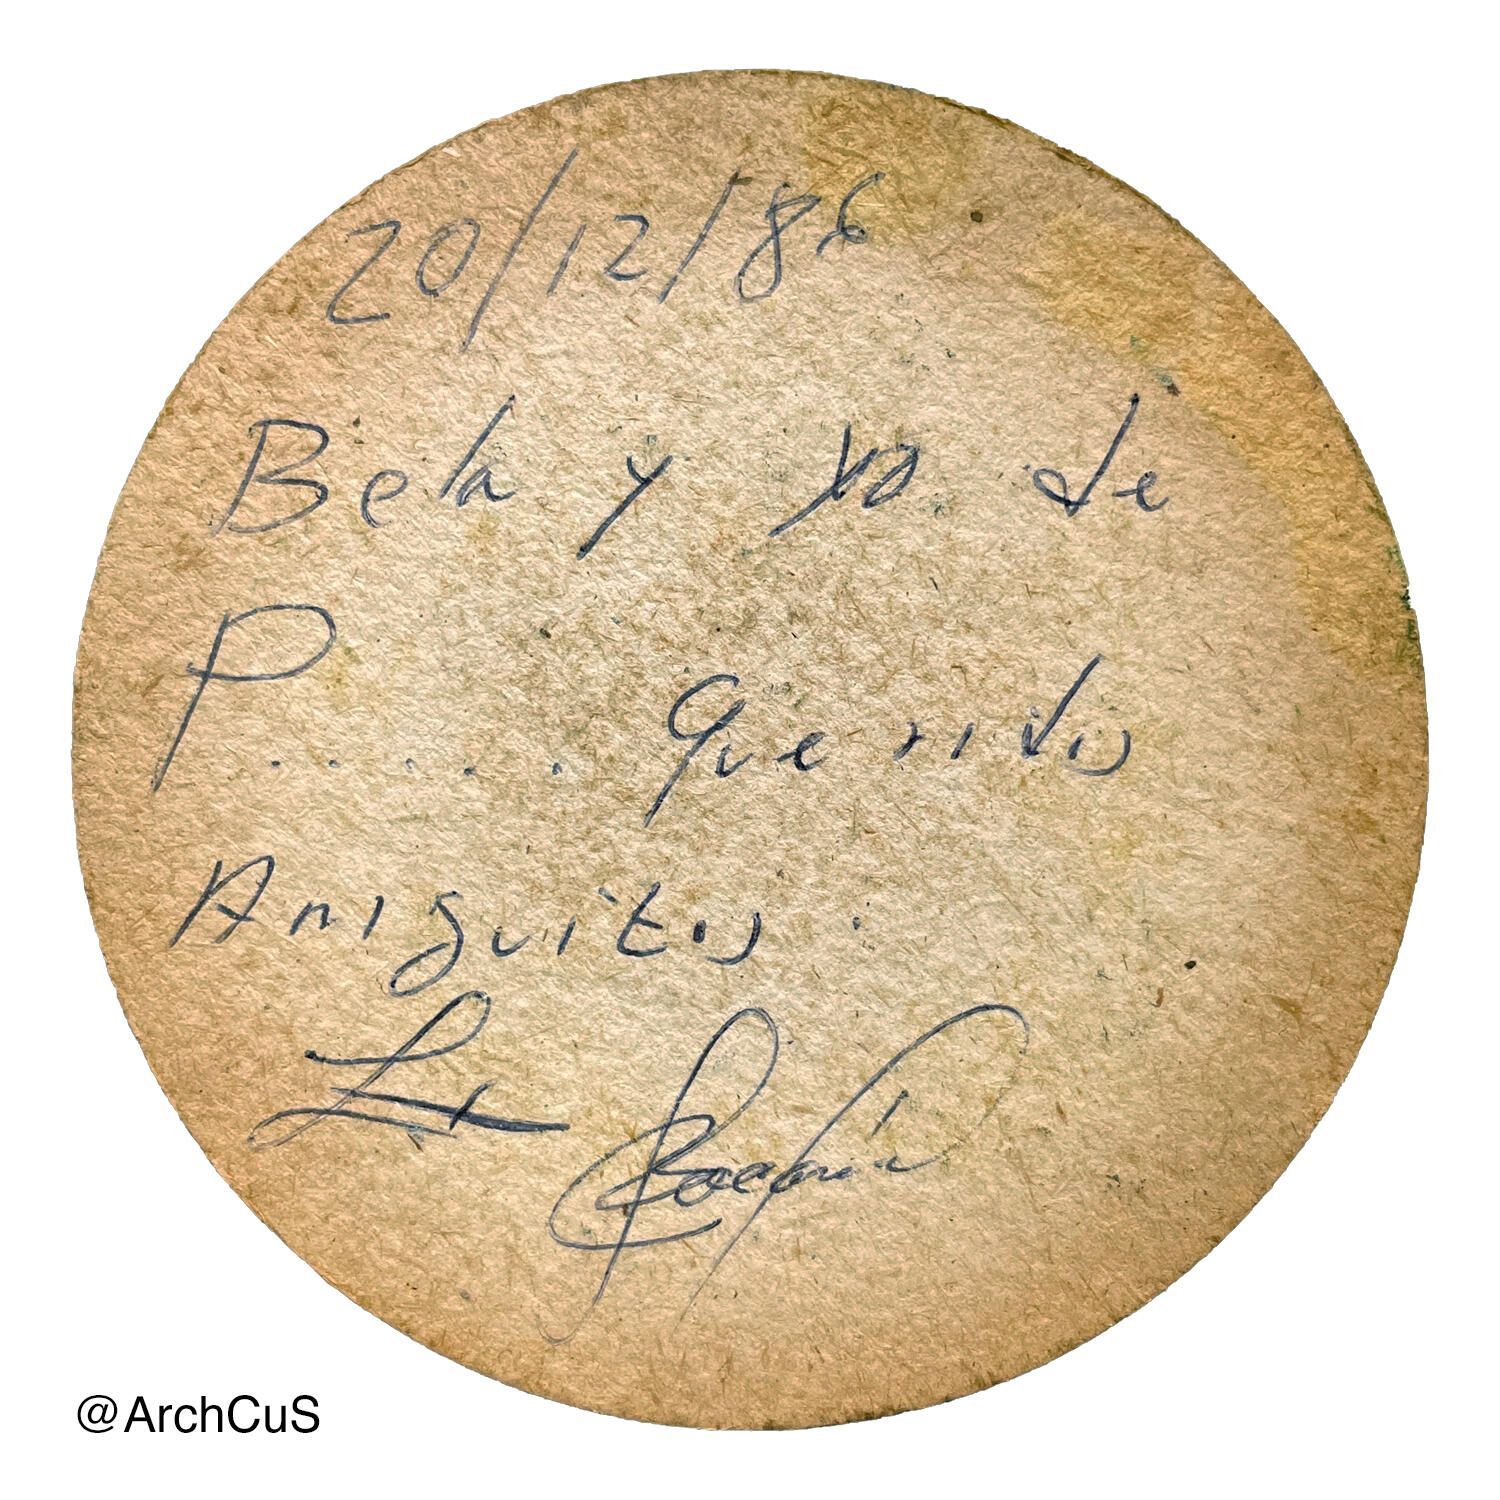 20/12/86
Bela y yo de
P..... queridos
Amiguitos:
@ArchCuS